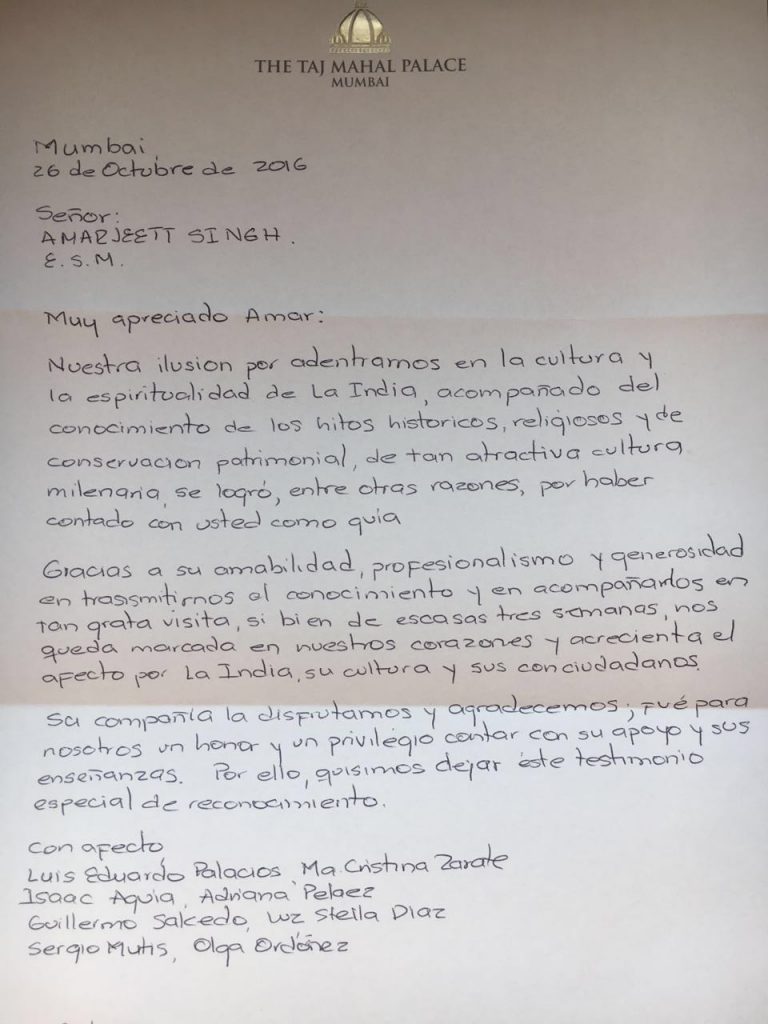 THE TAJ MAHAL PALACE
MUMBAI
Mumbai,
26 de Octubre de 2016
Señor:
AMARJEETT SINGH.
E.S.M.
Muy apreciado Amar:
Nuestra ilusion por adentrarnos en la cultura y
la espiritualidad de La India, acompañado del
conocimiento de los hitos historicos, religiosos y de
conservacion patrimonial, de tan atractiva cultura
milenaria, se logró, entre otras razones, por haber
contado con usted como guía
Gracias a su amabilidad, profesionalismo y generosidad
en trasmitirnos el conocimiento y en acompañarlos en
tan grata visita, si bien de escasas tres semanas, nos
queda marcada en nuestros corazones y acrecienta el
afecto por La India, su cultura y sus conciudadanos.
Su compañía la disfrutamos y agradecemos; fué para
nosotros un honor y un privilegio contar con su apoyo y sus
enseñanzas. Por ello, quisimos dejar éste testimonio
especial de reconocimiento.
Con afecto
Luis Eduardo Palacios, Ma. Cristina Zarate
Isaac Aquia, Adriana Pelaez
Guillermo Salcedo, Luz Stella Diaz
Sergio Mutis, Olga Ordóñez